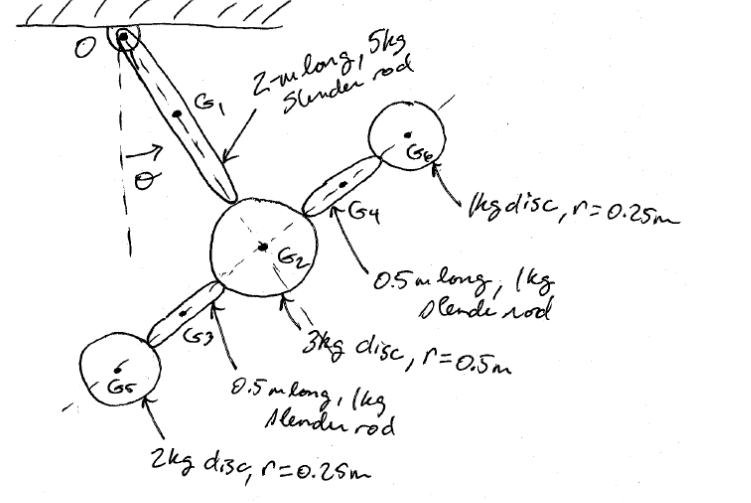 O
G₁
2-m long, 5kg
Slender rod
θ
G₆
1kg disc, r=0.25m
G₄
G₂
0.5m long, 1kg
Slender rod
G₃
3kg disc, r=0.5m
G₅
0.5m long, 1kg
Slender rod
2kg disc, r=0.25m